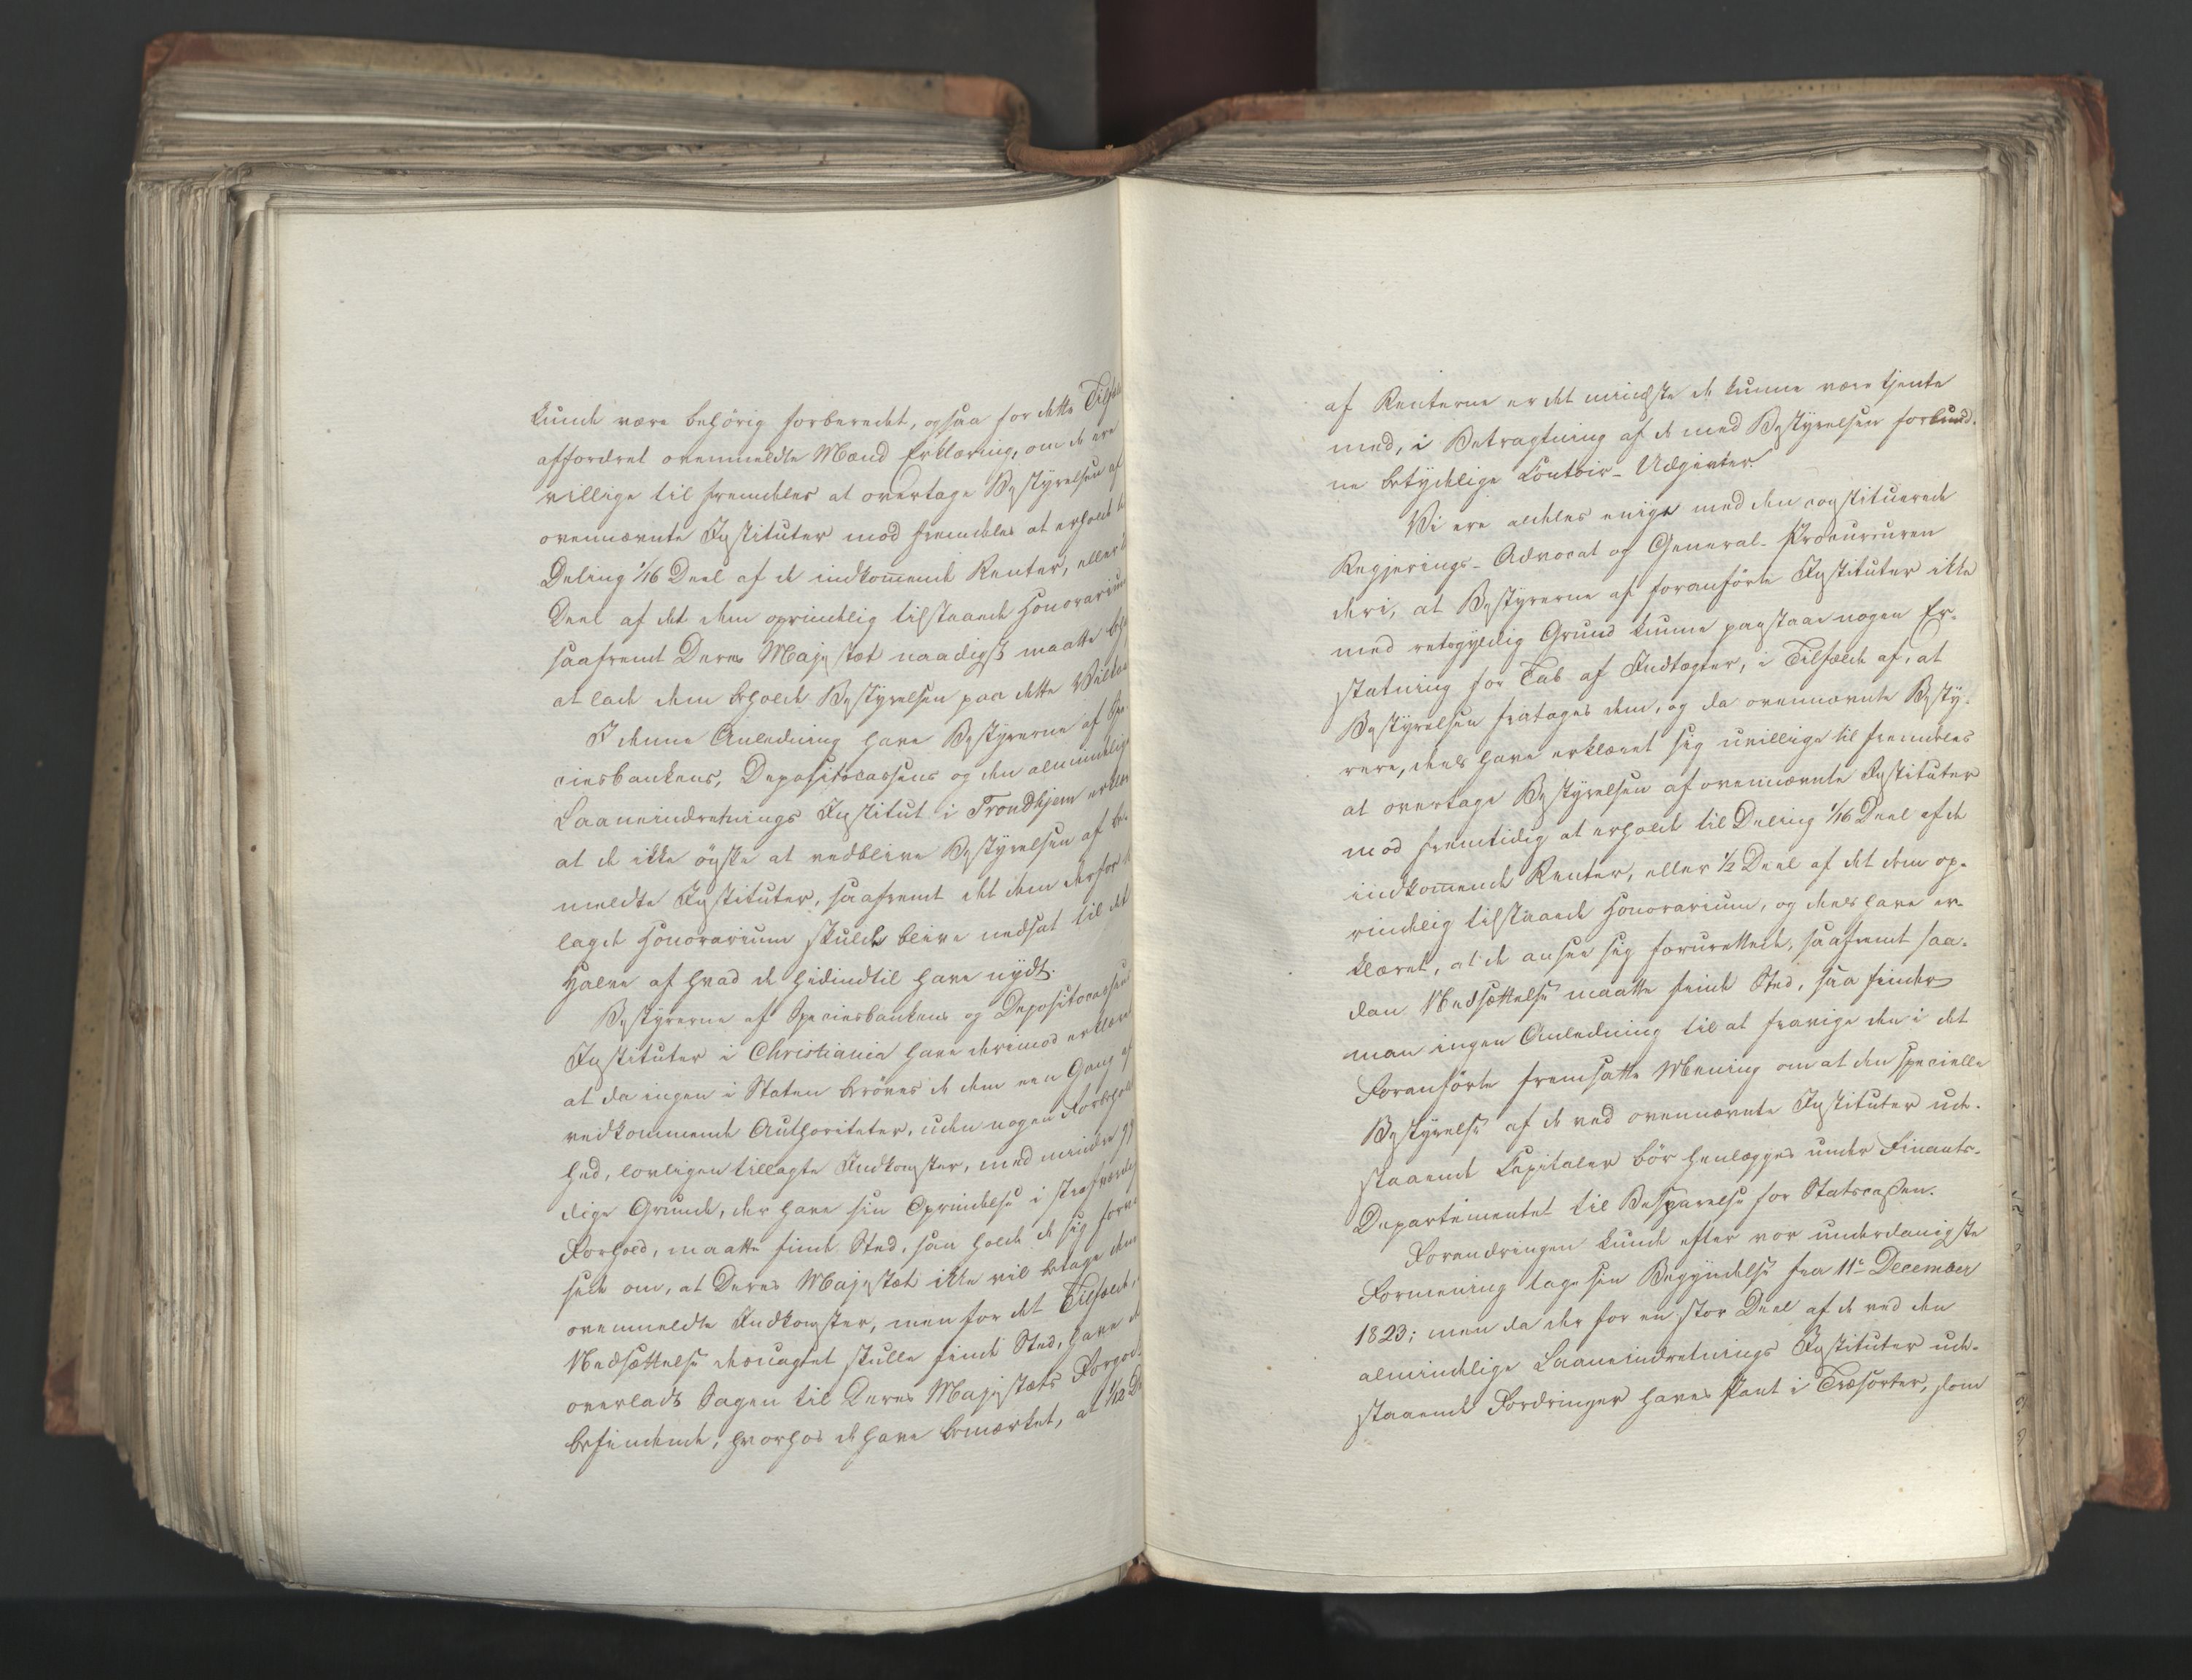 kunde være behörig forberedt, ogsaa for dette
affordret ovenmeldte Mænd Erklæring, om de ere
villige til fremdeles at overtage Bestyrelsen af
ovennævnte Instituter mod fremdeles at erholde
Deling 1/16 Deel af de indkommende Renter, eller
Deel af det dem oprindelig tilstaaede Honorarium
saafremt Deres Majestæt naadigst maatte
at lade dem beholde Bestyrelsen paa dette
I denne Anledning have Bestyrerne af
ciesbankens, Depositocassens og den almindelige
Laaneindretnings Institut i Trondhjem
at de ikke önske at vedblive Bestyrelsen af be-
meldte Instituter, saafremt det dem derfor
lagde Honorarium skulde blive nedsat til det
Halve af hvad de hidindtil have nydt.
Bestyrerne af Speciesbankens og Depositocassens
Instituter i Christiania have derimod erklæret
at da ingen i Staten beröves de dem een Gang af
vedkommende Authoriteter, uden nogen
hed, lovligen tillagte Indkomster, med mindre
dige Grunde, der have sin Oprindelse i
Forhold, maatte finde Sted, saa holde de sig
sede om, at Deres Majestæt ikke vil betage dem
ovenmeldte Indkomster, men for det Tilfælde,
Nedsættelse desuagtet skulle finde Sted, have de
overladt Sagen til Deres Majestæts
befindende, hvorhos de have bemærket, at 1/12
af Renterne er det mindste de kunne være tjente
med, i Betragtning af de med Bestyrelsen forbund-
ne betydelige Contoir-Udgivter.
Vi ere aldeles enige med den constituerede
Regjerings-Advocat og General-Procureuren
deri, at Bestyrerne af foranförte Instituter ikke
med retsgyldig Grund kunne paastaae nogen Er-
statning for Tab af Indtægter, i Tilfælde af, at
Bestyrelsen fratages dem, og da ovennævnte Besty-
rere, deels have erklæret sig uvillige til fremdeles
at overtage Bestyrelsen af ovennævnte Instituter
mod fremtidig at erholde til Deling 1/16 Deel af de
indkommende Renter, eller 1/2 Deel af det dem op-
rindelig tilstaaede Honorarium, og deels have er-
klæret, at de ansee sig forurettede, saafremt saa-
dan Nedsættelse maatte finde Sted, saa finder
man ingen Anledning til at fravige den i det
Foranförte fremsatte Mening om at den specielle
Bestyrelse af de ved ovennævnte Instituter ude-
staaende Capitaler bör henlægges under Finants-
Departementet til Besparelse for Statscassen.
Forandringen kunde efter vor underdanigste
Formening tage sin Begyndelse fra 11te December
1823; men da der for en stor Deel af de ved den
almindelige Laaneindretnings Instituter ude-
staaende Fordringer haves Pant i Træsorter, som